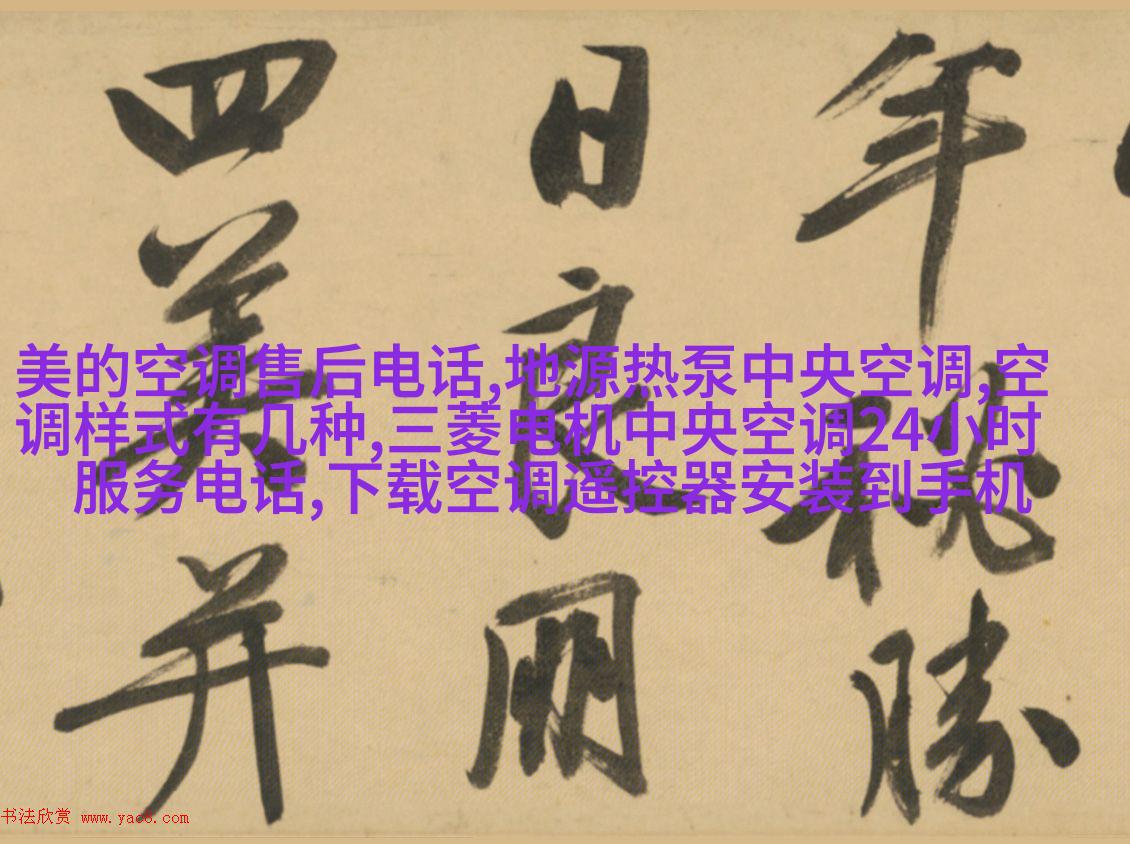 年 勝
日良朋
四美并
美的空调售后电话,地源热泵中央空调,空
调样式有几种,三菱电机中央空调24小时
服务电话,下载空调遥控器安装到手机
书法欣赏 www.yac8.com